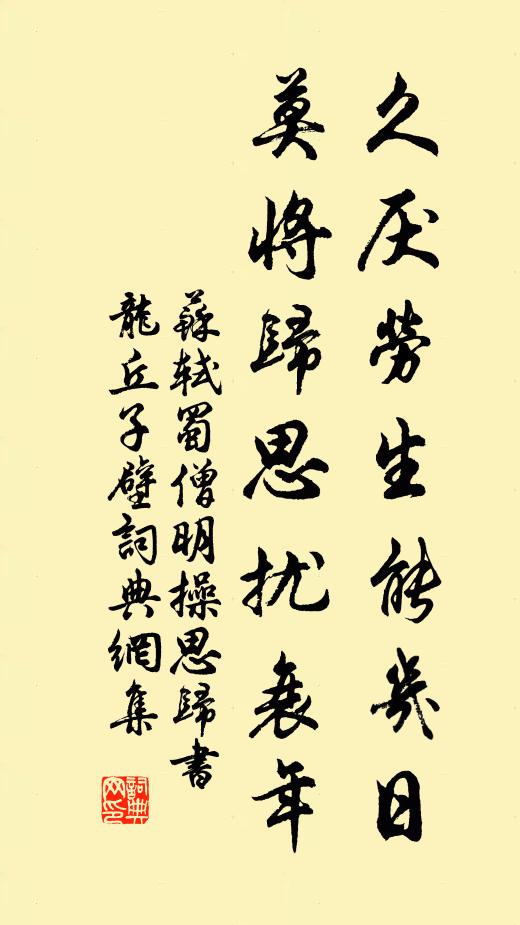 久厌劳生能几日
莫将归思扰衰年
蘇軾蜀僧明操思歸書
龍丘子壁詞典網集
詞典网印